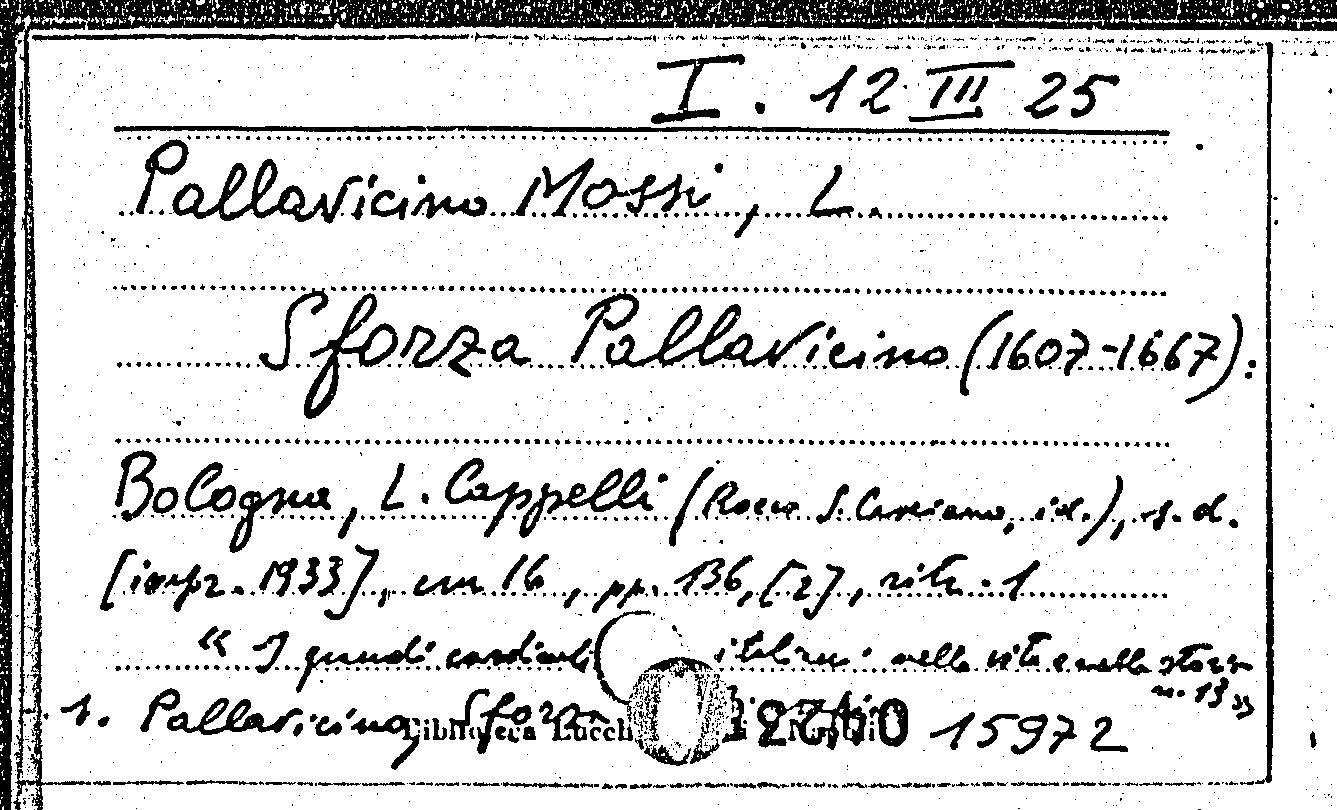 I. 12 III 25
Pallavicino Mossi, L.
Sforza Pallavicino (1607-1667).
Bologna, L. Cappelli (Rocca S. Casciano, id.), s.d.
[impr. 1933], cm 16, pp. 136, [2], ritr. 1
« I grandi cardinali italiani nella vita e nella storia
n. 13 »
1. Pallavicino, Sforza 15972
Biblioteca